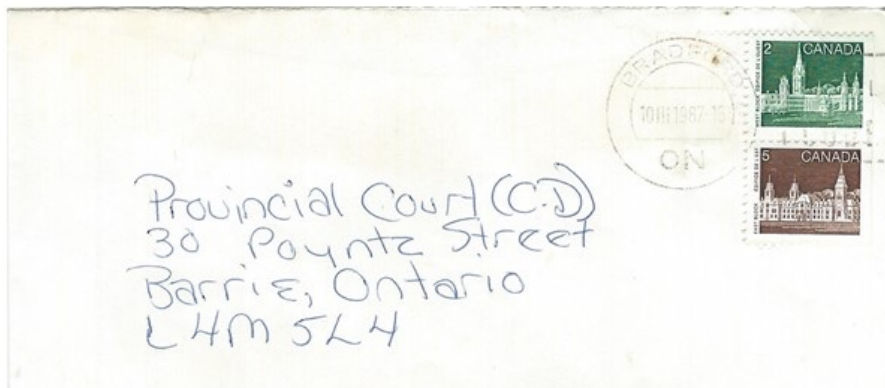 2 CANADA
BRADFORD
10 III 1987-16
ON
5 CANADA
Provincial Court (C.D)
30 Poyntz Street
Barrie, Ontario
L4M 5L4